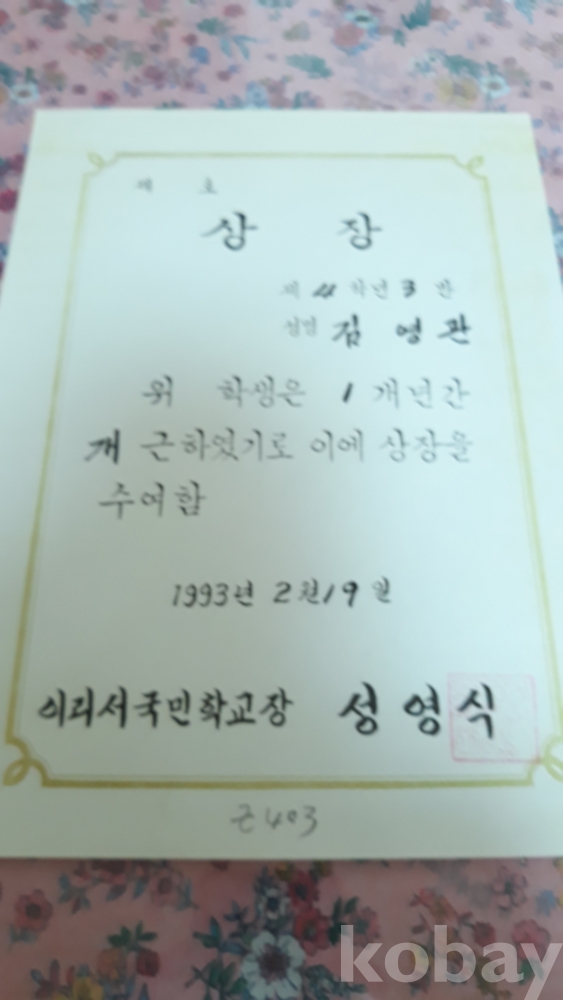 제 호
상 장
제 4 학년 3 반
성명 김 영 관
위 학생은 1 개년간
개 근하였기로 이에 상장을
수여함
1993년 2월 19일
이리서국민학교장 성 영 식
근403
kobay